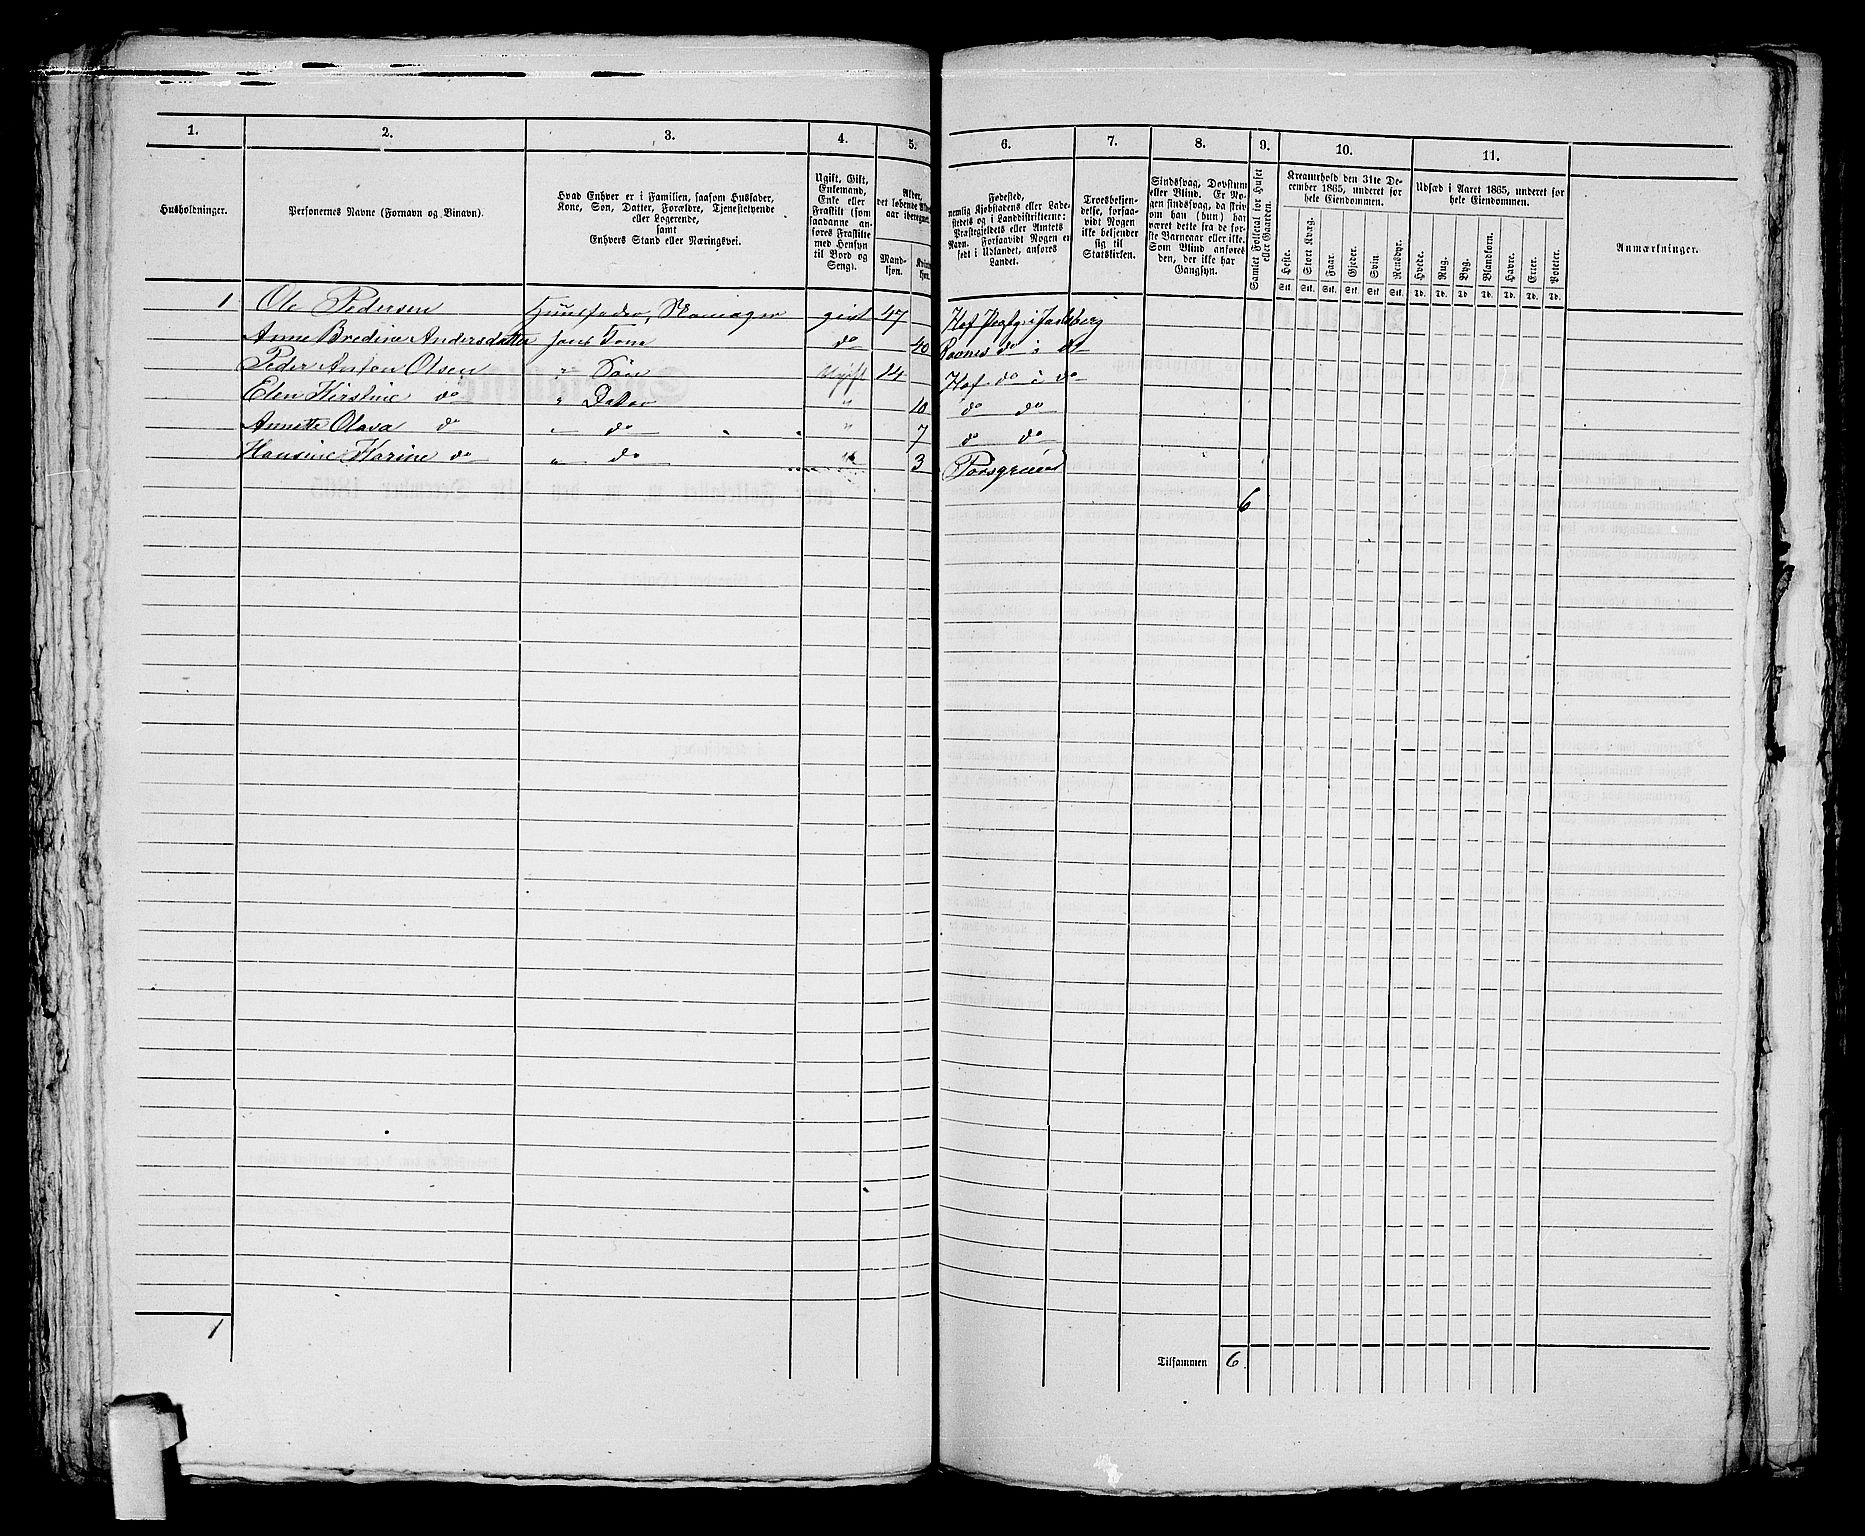 1. 2. 3. 4. 5. 6. 7. 8. 9. 10. 11.
Husholdninger.
Personernes Navne (Fornavn og Binavn).
Hvad Enhver er i Familien, saasom Husfader,
Kone, Søn, Datter, Forældre, Tjenestetyende
eller Logerende,
samt
Enhvers Stand eller Næringsvei.
Ugift, Gift,
Enkemand,
Enke eller
Fraskilt (som
saadanne an-
føres Fraskilte
med Hensyn
til Bord og
Seng).
Alder,
det løbende Alders-
aar iberegnet.
Mand-
kjøn.
Kvinde-
kjøn.
Fødested,
nemlig Kjøbstadens eller Lade-
stedets og i Landdistrikterne:
Præstegjeldets eller Amtets
Navn. Forsaavidt Nogen er
født i Udlandet, anføres
Landet.
Troesbekjen-
delse, forsaa-
vidt Nogen
ikke bekjender
sig til
Statskirken.
Sindssvag, Døvstum
eller Blind. Er No-
gen sindssvag, da skrives
om han (hun) har
været dette fra de før-
ste Barneaar eller ikke.
Som Blind anføres
den, der ikke har
Gangsyn.
Samlet Folketal for Huset
eller Gaarden.
Kreaturhold den 31te De-
cember 1865, underet for
hele Eiendommen.
Heste. Stort Kvæg. Faar. Gjeder. Svin. Rensdyr.
Stk. Stk. Stk. Stk. Stk. Stk.
Udsæd i Aaret 1865, underet for
hele Eiendommen.
Hvede. Rug. Byg. Blandkorn. Havre. Erter. Poteter.
Td. Td. Td. Td. Td. Td. Td.
Anmærkninger.
1 Ole Pedersen Huusfader, Skomager givt 47 Hof Pgtg i Jarlsberg
Anne Bredine Andersdatter hans Kone do 40 Ravnes do i do
Peder Anton Olsen " Søn Ugift 14 Hof do i do
Elen Kirstine do " Datter " 10 do do
Annette Olava do " do " 7 do do
Hansine Karine do " do " 3 Porsgrund
6
1
Tilsammen 6